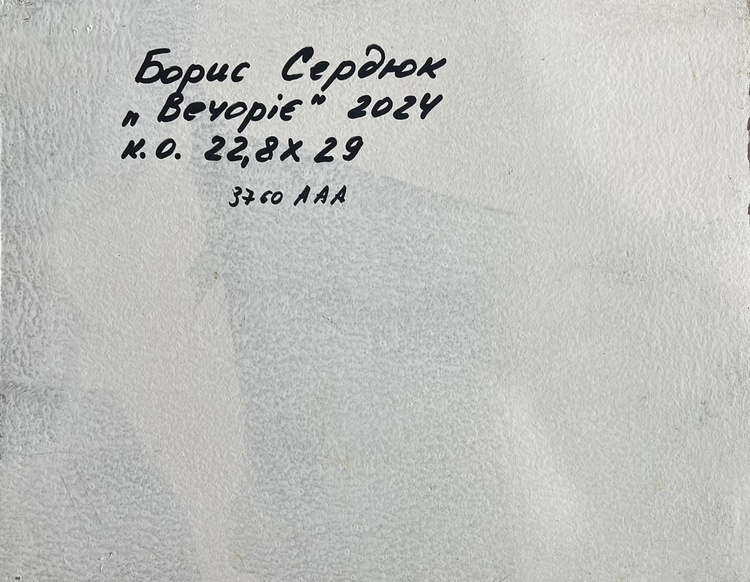 Борис Сердюк
„Вечоріє" 2024
к.о. 22,8х29
3760 ААА